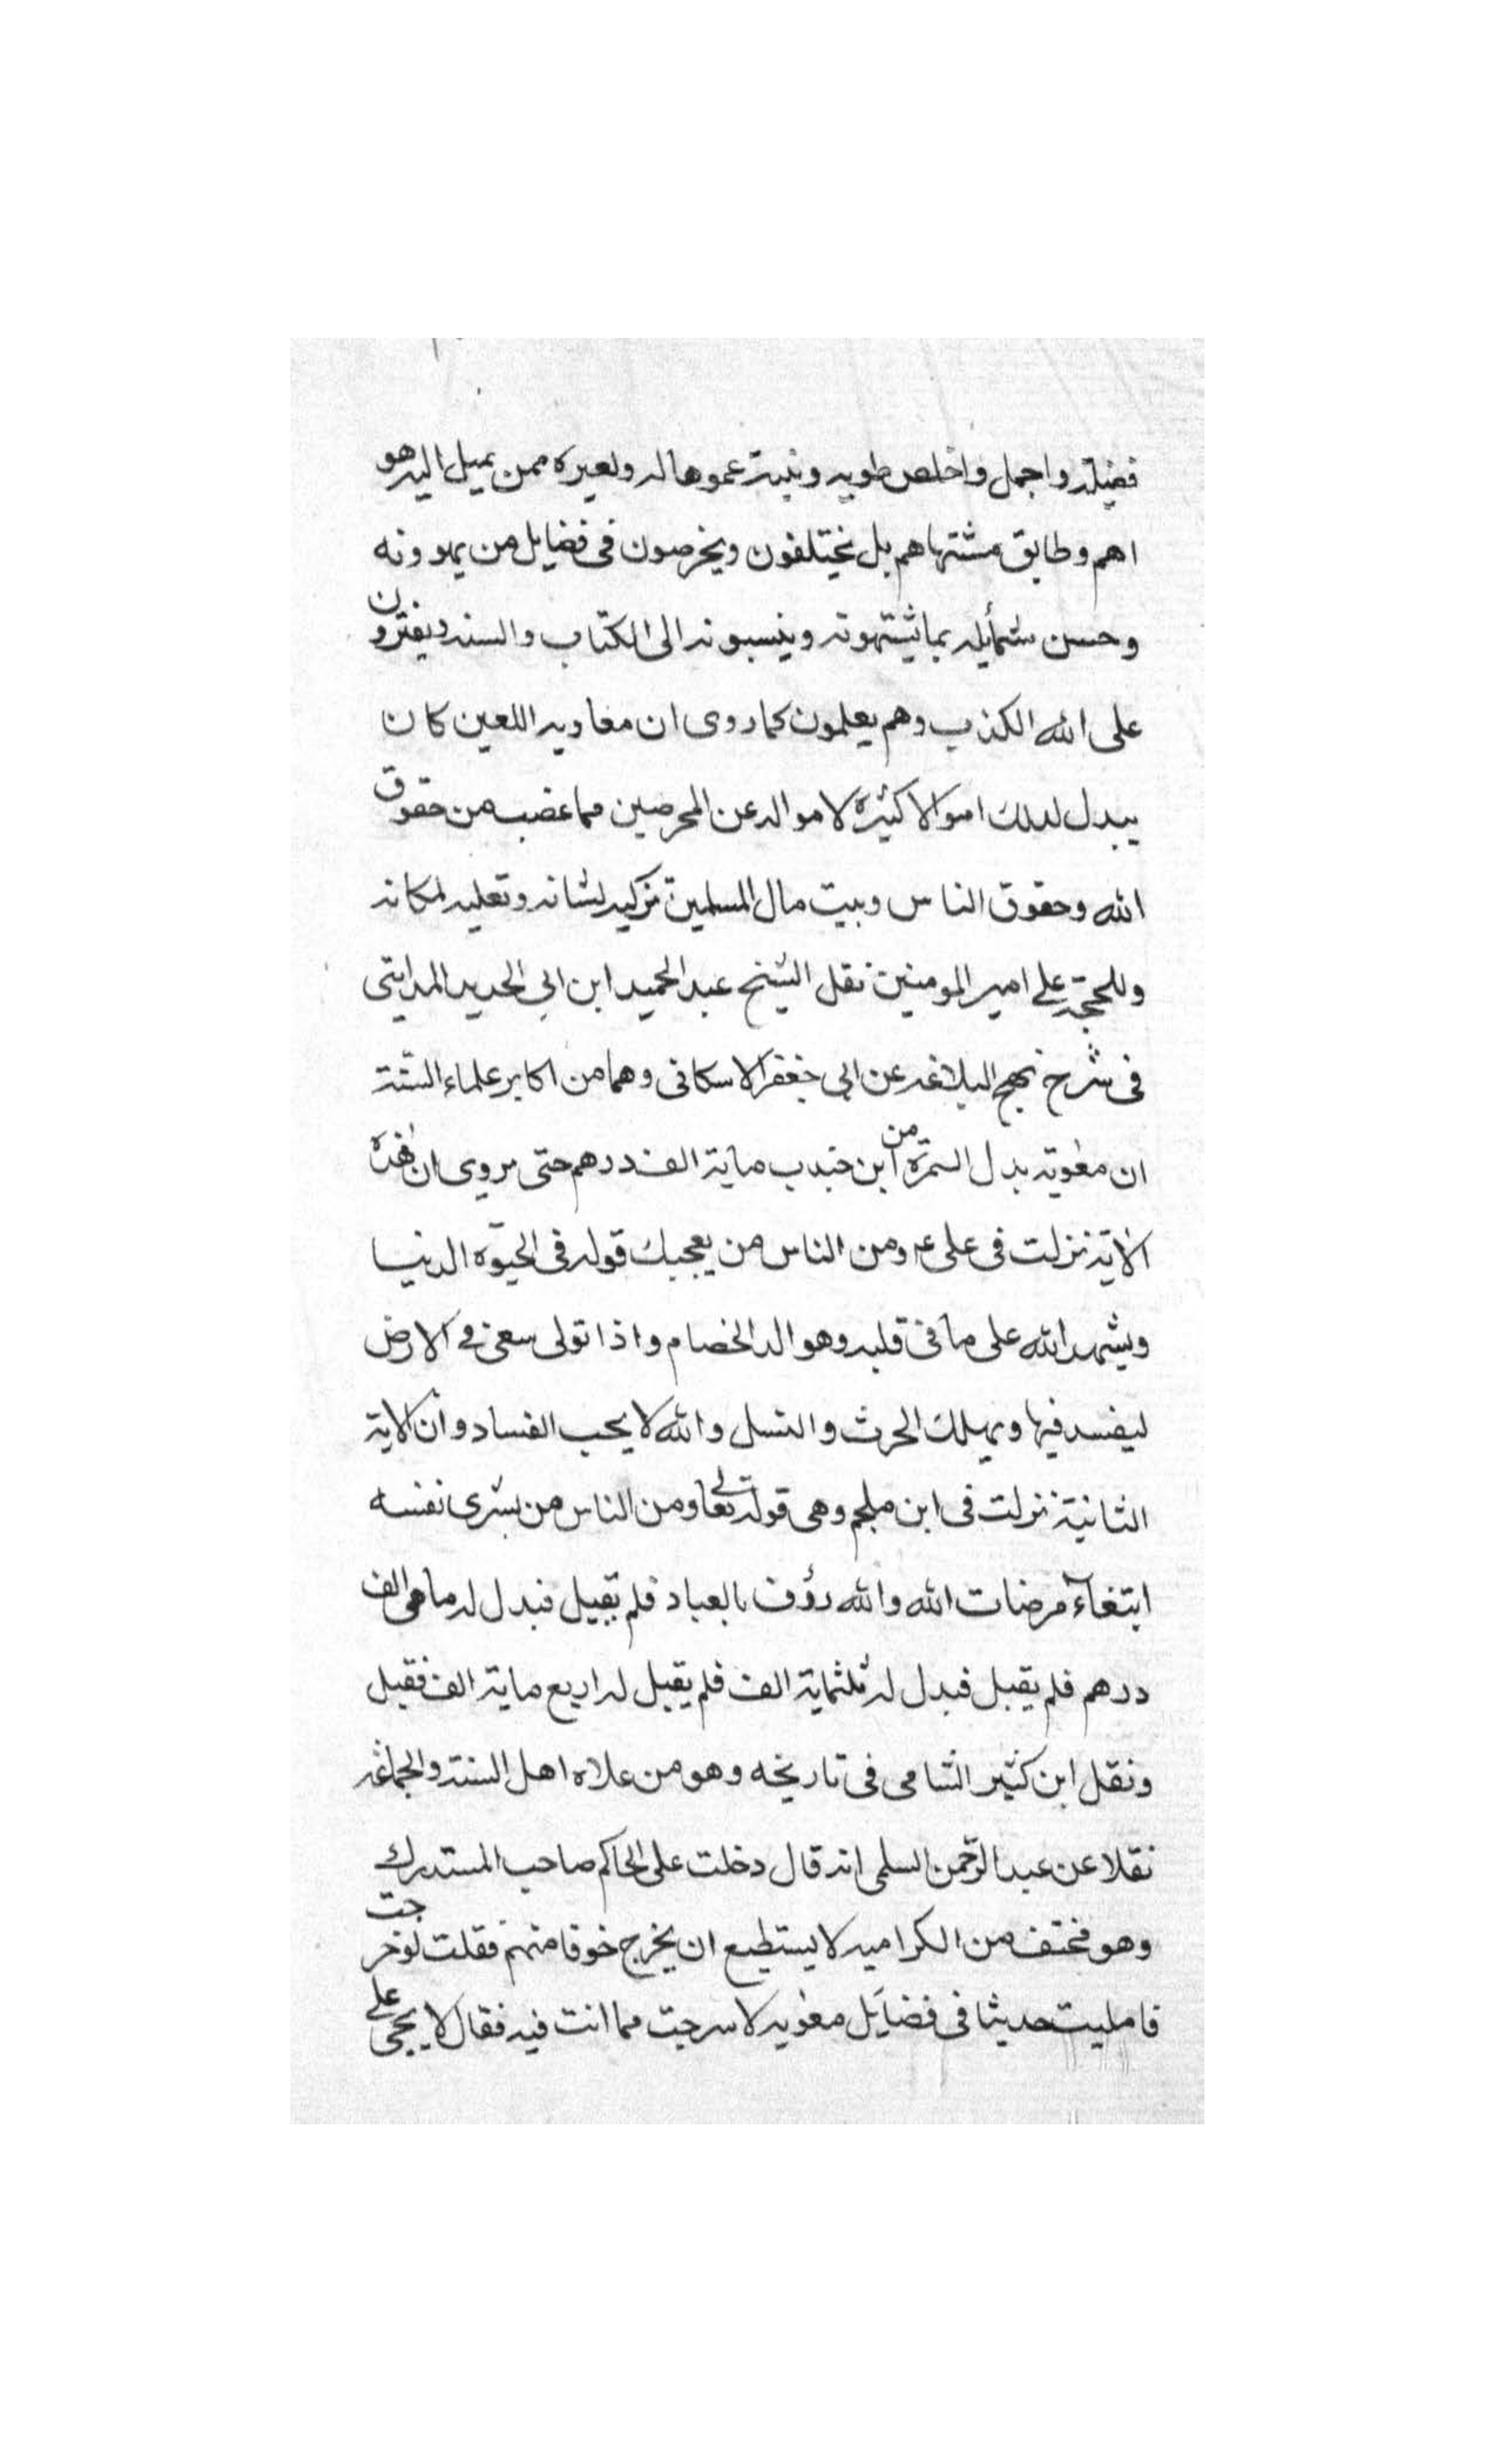 فضيلة واجمل واخلص طويه ونية عموها له ولغيره ممن يميل اليه هو
اهم وطابق مشتهاهم بل يختلفون ويخرصون فى فضايل من يهوونه
وحسن شمأيله بما يشتهونه وينسبونه الى الكتاب والسنه ويفترون
على الله الكذب وهم يعلمون كما روى ان معاويه اللعين كان
يبدل لدلك اموالا كثيرة لامواله عن المحرصين مما غضب من حقوق
الله وحقوق الناس وبيت مال المسلمين تزكيه لشانه وتعليه لمكانه
وللحجة على امير المومنين نقل الشيخ عبد الحميد ابن ابي الحديد المدايني
فى شرح نهج البلاغه عن ابي جعفر الاسكافى وهما من اكابر علماء السنة
ان معوية بدل السمرة من ابن جندب ماية الف درهم حتى يروى ان هذه
الاية نزلت فى على ع ومن الناس من يعجبك قوله فى الحيوة الدنيا
ويشهد الله على ما فى قلبه وهو الد الخصام واذا تولى سعى فى الارض
ليفسد فيها ويهلك الحرث والنسل والله لا يحب الفساد وان الاية
الثانية نزلت فى ابن ملجم وهى قوله تعالى ومن الناس من يشرى نفسه
ابتغاء مرضات الله والله رؤف بالعباد فلم يقبل فبدل له مأتى الف
درهم فلم يقبل فبدل له ثلثماية الف فلم يقبل له اربع ماية الف فقبل
ونقل ابن كثير الشامى فى تاريخه وهو من علاه اهل السنة والجماعه
نقلا عن عبد الرحمن السلمى انه قال دخلت على الحاكم صاحب المستدرك
وهو مختف من الكراميه لا يستطيع ان يخرج خوفا منهم فقلت لو خرجت
فامليت حديثا فى فضايل معويه لاسرجت مما انت فيه فقال لا يجى على